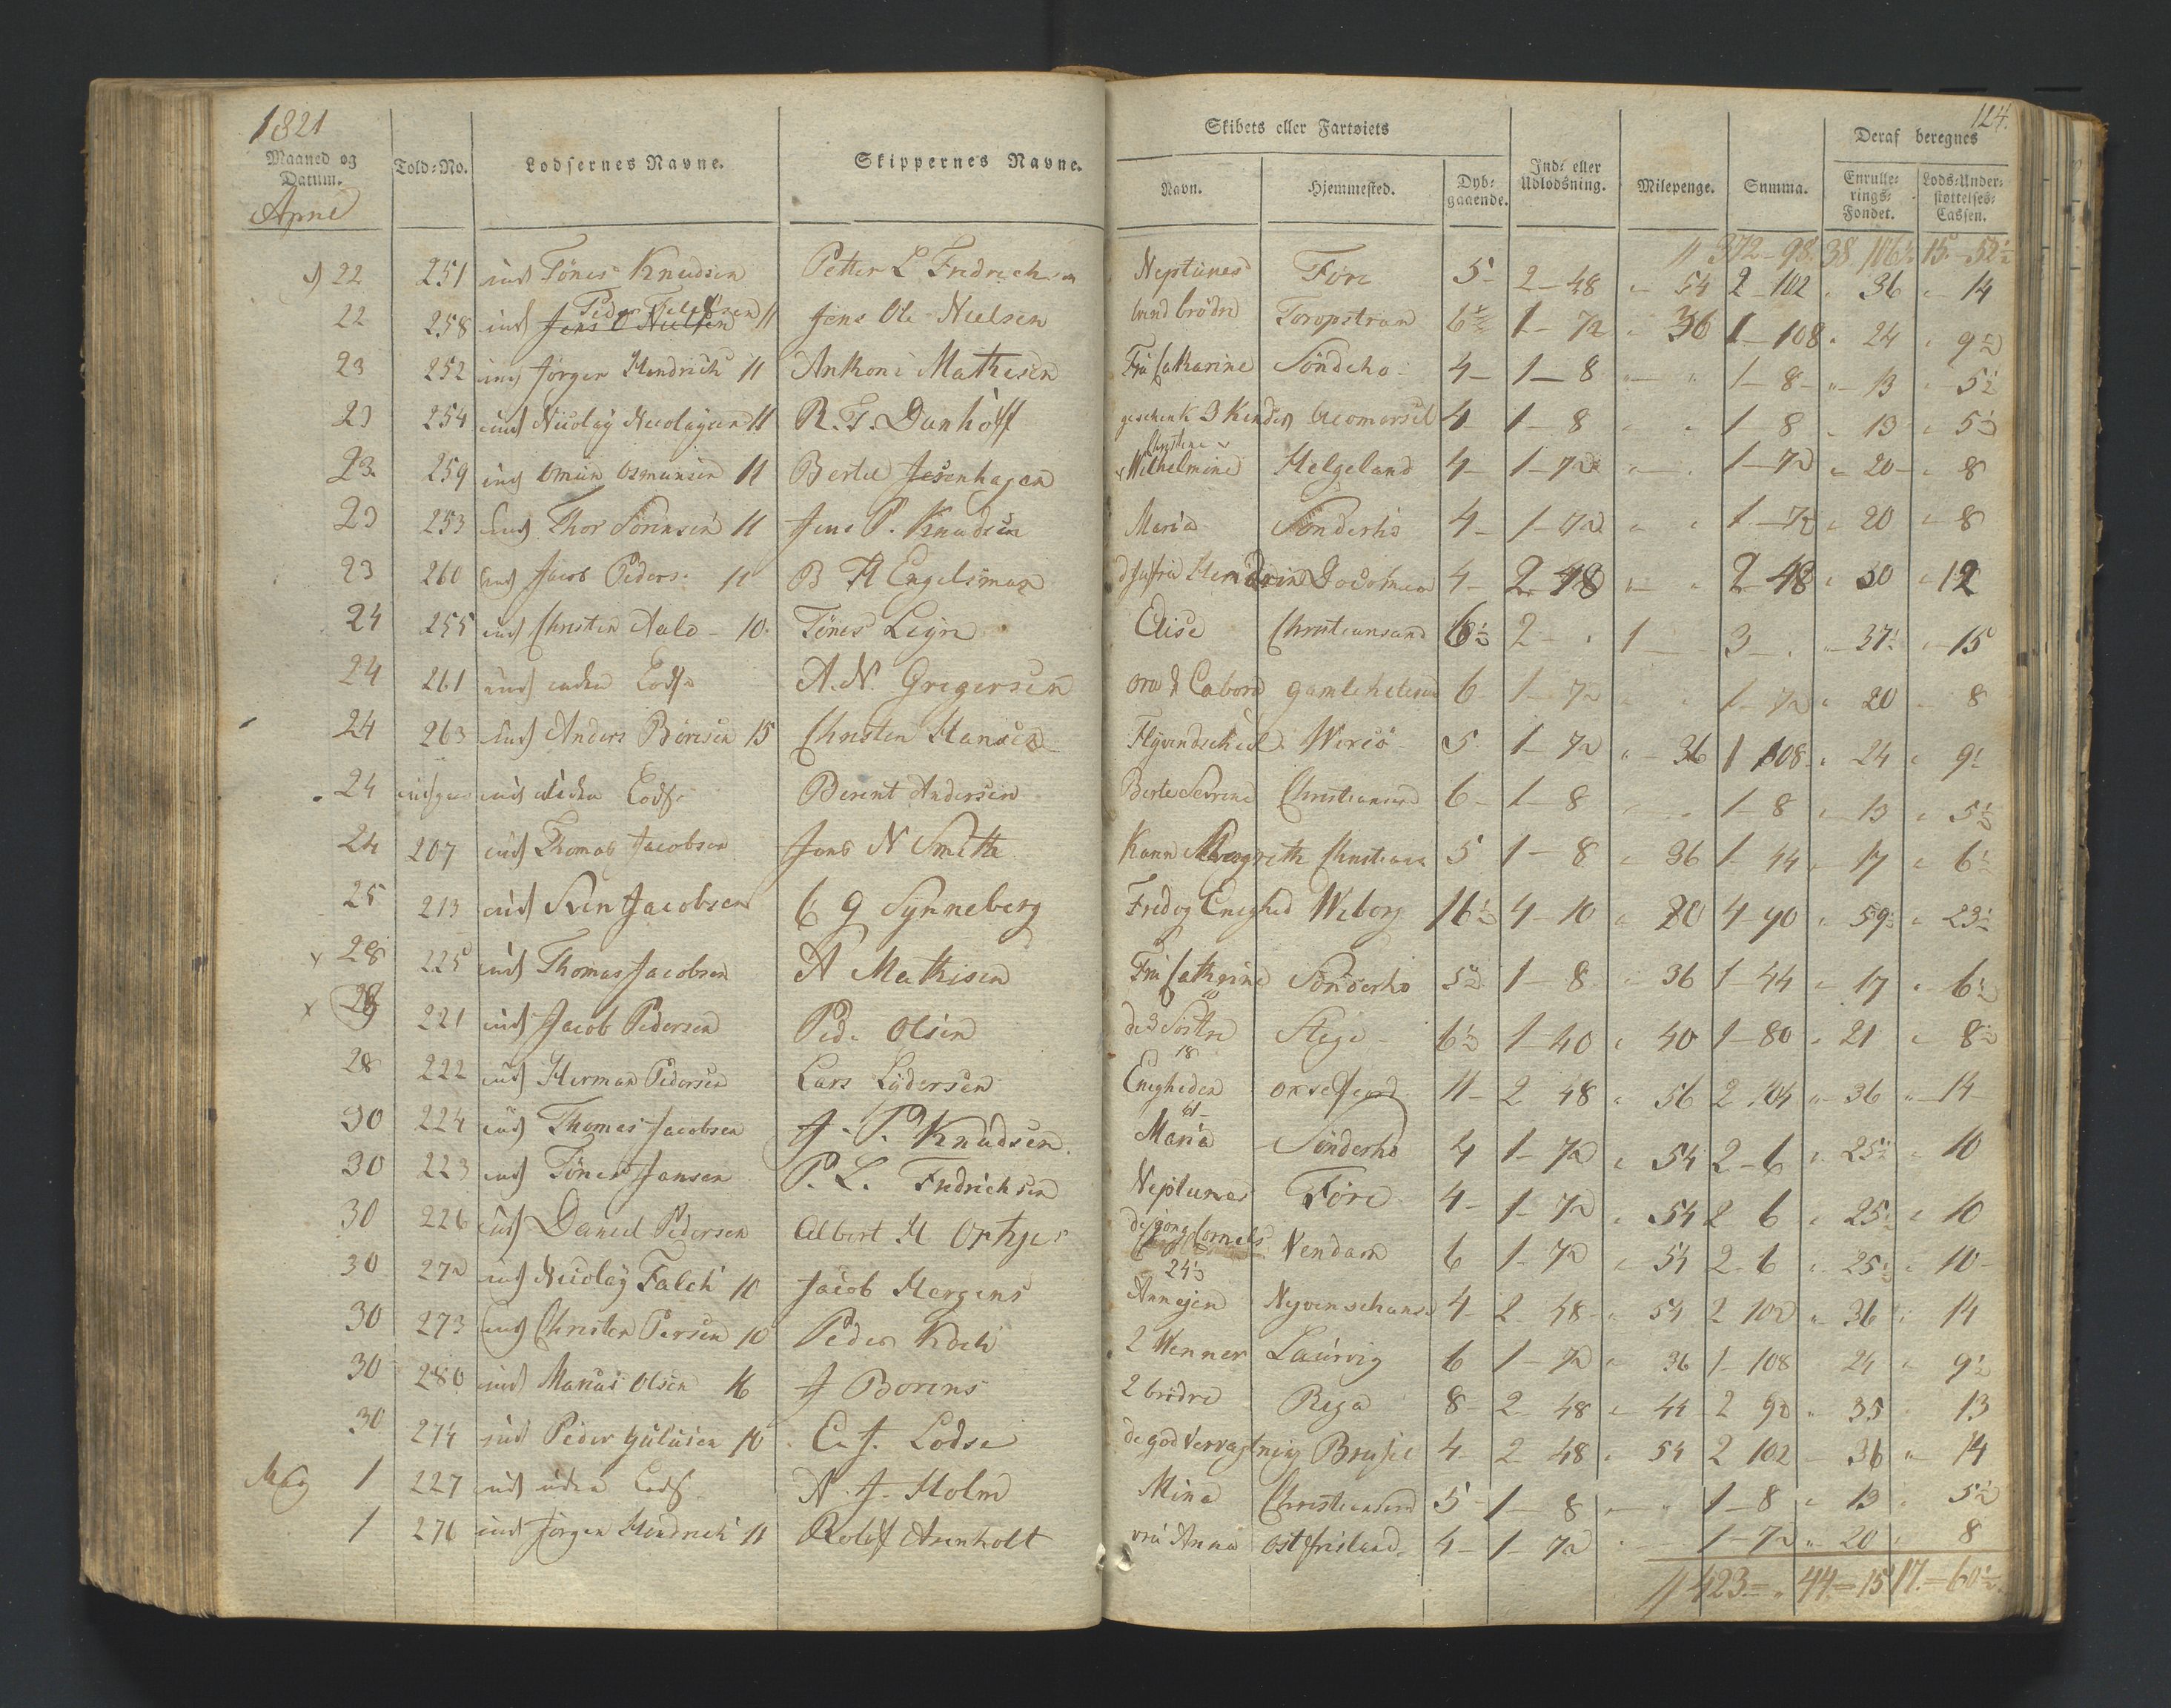 1821
124.
Maaned og Datum. Told-No. Lodsernes Navne. Skippernes Navne. Skibets eller Fartøiets Navn. Hjemmested. Dybgaaende. Ind- eller Udlodsning. Milepenge. Summa. Deraf beregnes Enrullerings-Fondet. Lods-Understøttelses-Cassen.
372-98 38 106½ 15-52½
22 251 ind Tönes Knudsen Petter L Fredrichsen Neptunes Före 5 2-48 54 2-102 36 14
22 258 ind Jens Ole Nielsen brödre 1-72 36 1-108 24 9½
23 252 ind Jörgen Hendrich 11 Anthoni Mathisen Fru Catharine Sönderho 4 1-8 1-8 13 5½
23 254 ind Nicolay Nicolaysen 11 R. T. Danhoff 4 1-8 1-8 13 5½
23 259 ind Omun Osmunsen 11 Bertel Jesenhagen Wilhelmine Helgeland 4 1-72 1-72 20 8
23 253 ind Thor Sörensen 11 Jens P. Knudsen Maria Sönderho 4 1-72 1-72 20 8
23 260 ind Jacob Peders: 11 B H Engelsman 4 2 48 2-48 30 12
24 255 ind Christen Aalo 10 Tönes Leyre Elise Christiansand 6½ 2 1 3 37½ 15
24 261 ind uden Lods A. N. Gregersen 6 1-72 1-72 20 8
24 263 ind Anders Böresen 15 Christen Hansen 5 1-72 36 1 108 24 9½
24 ind uden Lods Berent Andersen Berte Serine Christiansand 6 1-8 1-8 13 5½
24 207 ud Thomas Jacobsen Jens N Smith Karen Margreth Christians 5 1-8 36 1-44 17 6½
25 213 ud Sven Jacobsen C G Synneberg Fred og Enighed Wiborg 16½ 4-10 80 4-90 59½ 23½
28 225 ud Thomas Jacobsen A Mathisen Fru Cathrine Sönderho 5½ 1-8 36 1-44 17 6½
221 ud Jacob Pedersen Ped. Olsen de 2 Söstre Stege 6½ 1-40 40 1-80 21 8½
28 222 ud Herman Pedersen Lars Lydersen Enigheden 18 11 2 48 56 2 104 36 14
30 224 ud Thomas Jacobsen J. P. Knudsen Maria Sönderho 4 1-72 54 2-6 25½ 10
30 223 ud Tönes Jansen P. L. Fredrichsen Neptunes Före 4 1-72 54 2 6 25½ 10
30 226 ud Daniel Pedersen Albert H Ortjes de jong Cornels Vendam 6 1-72 54 2-6 25½ 10
30 272 ind Nicolay Falch 10 Jacob Mergens 24½ Nyvenschans 4 2 48 54 2 102 36 14
30 273 ind Christen Persen 10 Peder Koch 2 Wenner Laurvig 6 1-72 36 1-108 24 9½
30 280 ind Marcus Olsen 16 J Borens 2 brödre Rega 8 2 48 44 2 92 35 13
30 274 ind Peder Gulusen 10 C. J. Lodse de god Vervagtning 4 2 48 54 2 102 36 14
May 1 227 ind uden Lods N. J. Holm Mina Christiansand 5 1-8 1-8 13 5½
1 276 ind Jörgen Hendrich 11 Rolof Arenholt vru Anna ostfrisland 4 1-72 1-72 20 8
423 44-15 17-60½